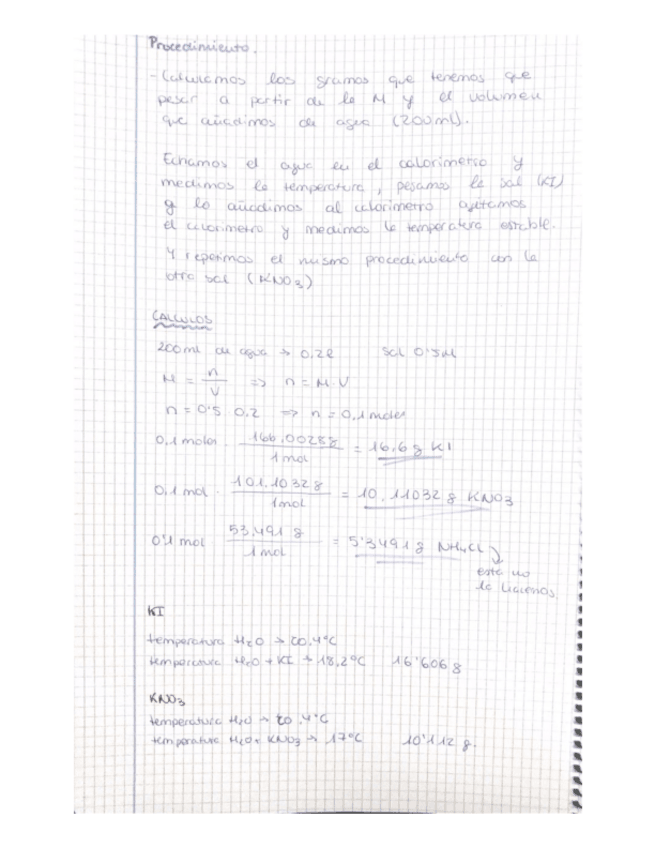 Procedimiento.
- Calculamos los gramos que tenemos que
pesar a partir de la M y el volumen
que añadimos de agua (200ml).
Echamos el agua en el calorimetro y
medimos la temperatura, pesamos la sal (KI)
y lo añadimos al calorimetro agitamos
el calorimetro y medimos la temperatura estable.
Y repetimos el mismo procedimiento con la
otra sal (KNO3)
CALCULOS
200ml de agua → 0.2l sal 0'5M
M = n/V => n = M·V
n = 0'5 0.2 => n = 0,1 moles
0,1 moles · 166,0028g/1 mol = 16,6g KI
0,1 mol · 101,1032g/1mol = 10,11032g KNO3
0'1 mol 53,491g/1 mol = 5'3491g NH4Cl
esta no
la hicimos
KI
temperatura H2O → 20,4ºC
temperatura H2O + KI → 18,2ºC 16'606g
KNO3
temperatura H2O → 20,4ºC
temperatura H2O + KNO3 → 17ºC 10'112 g.